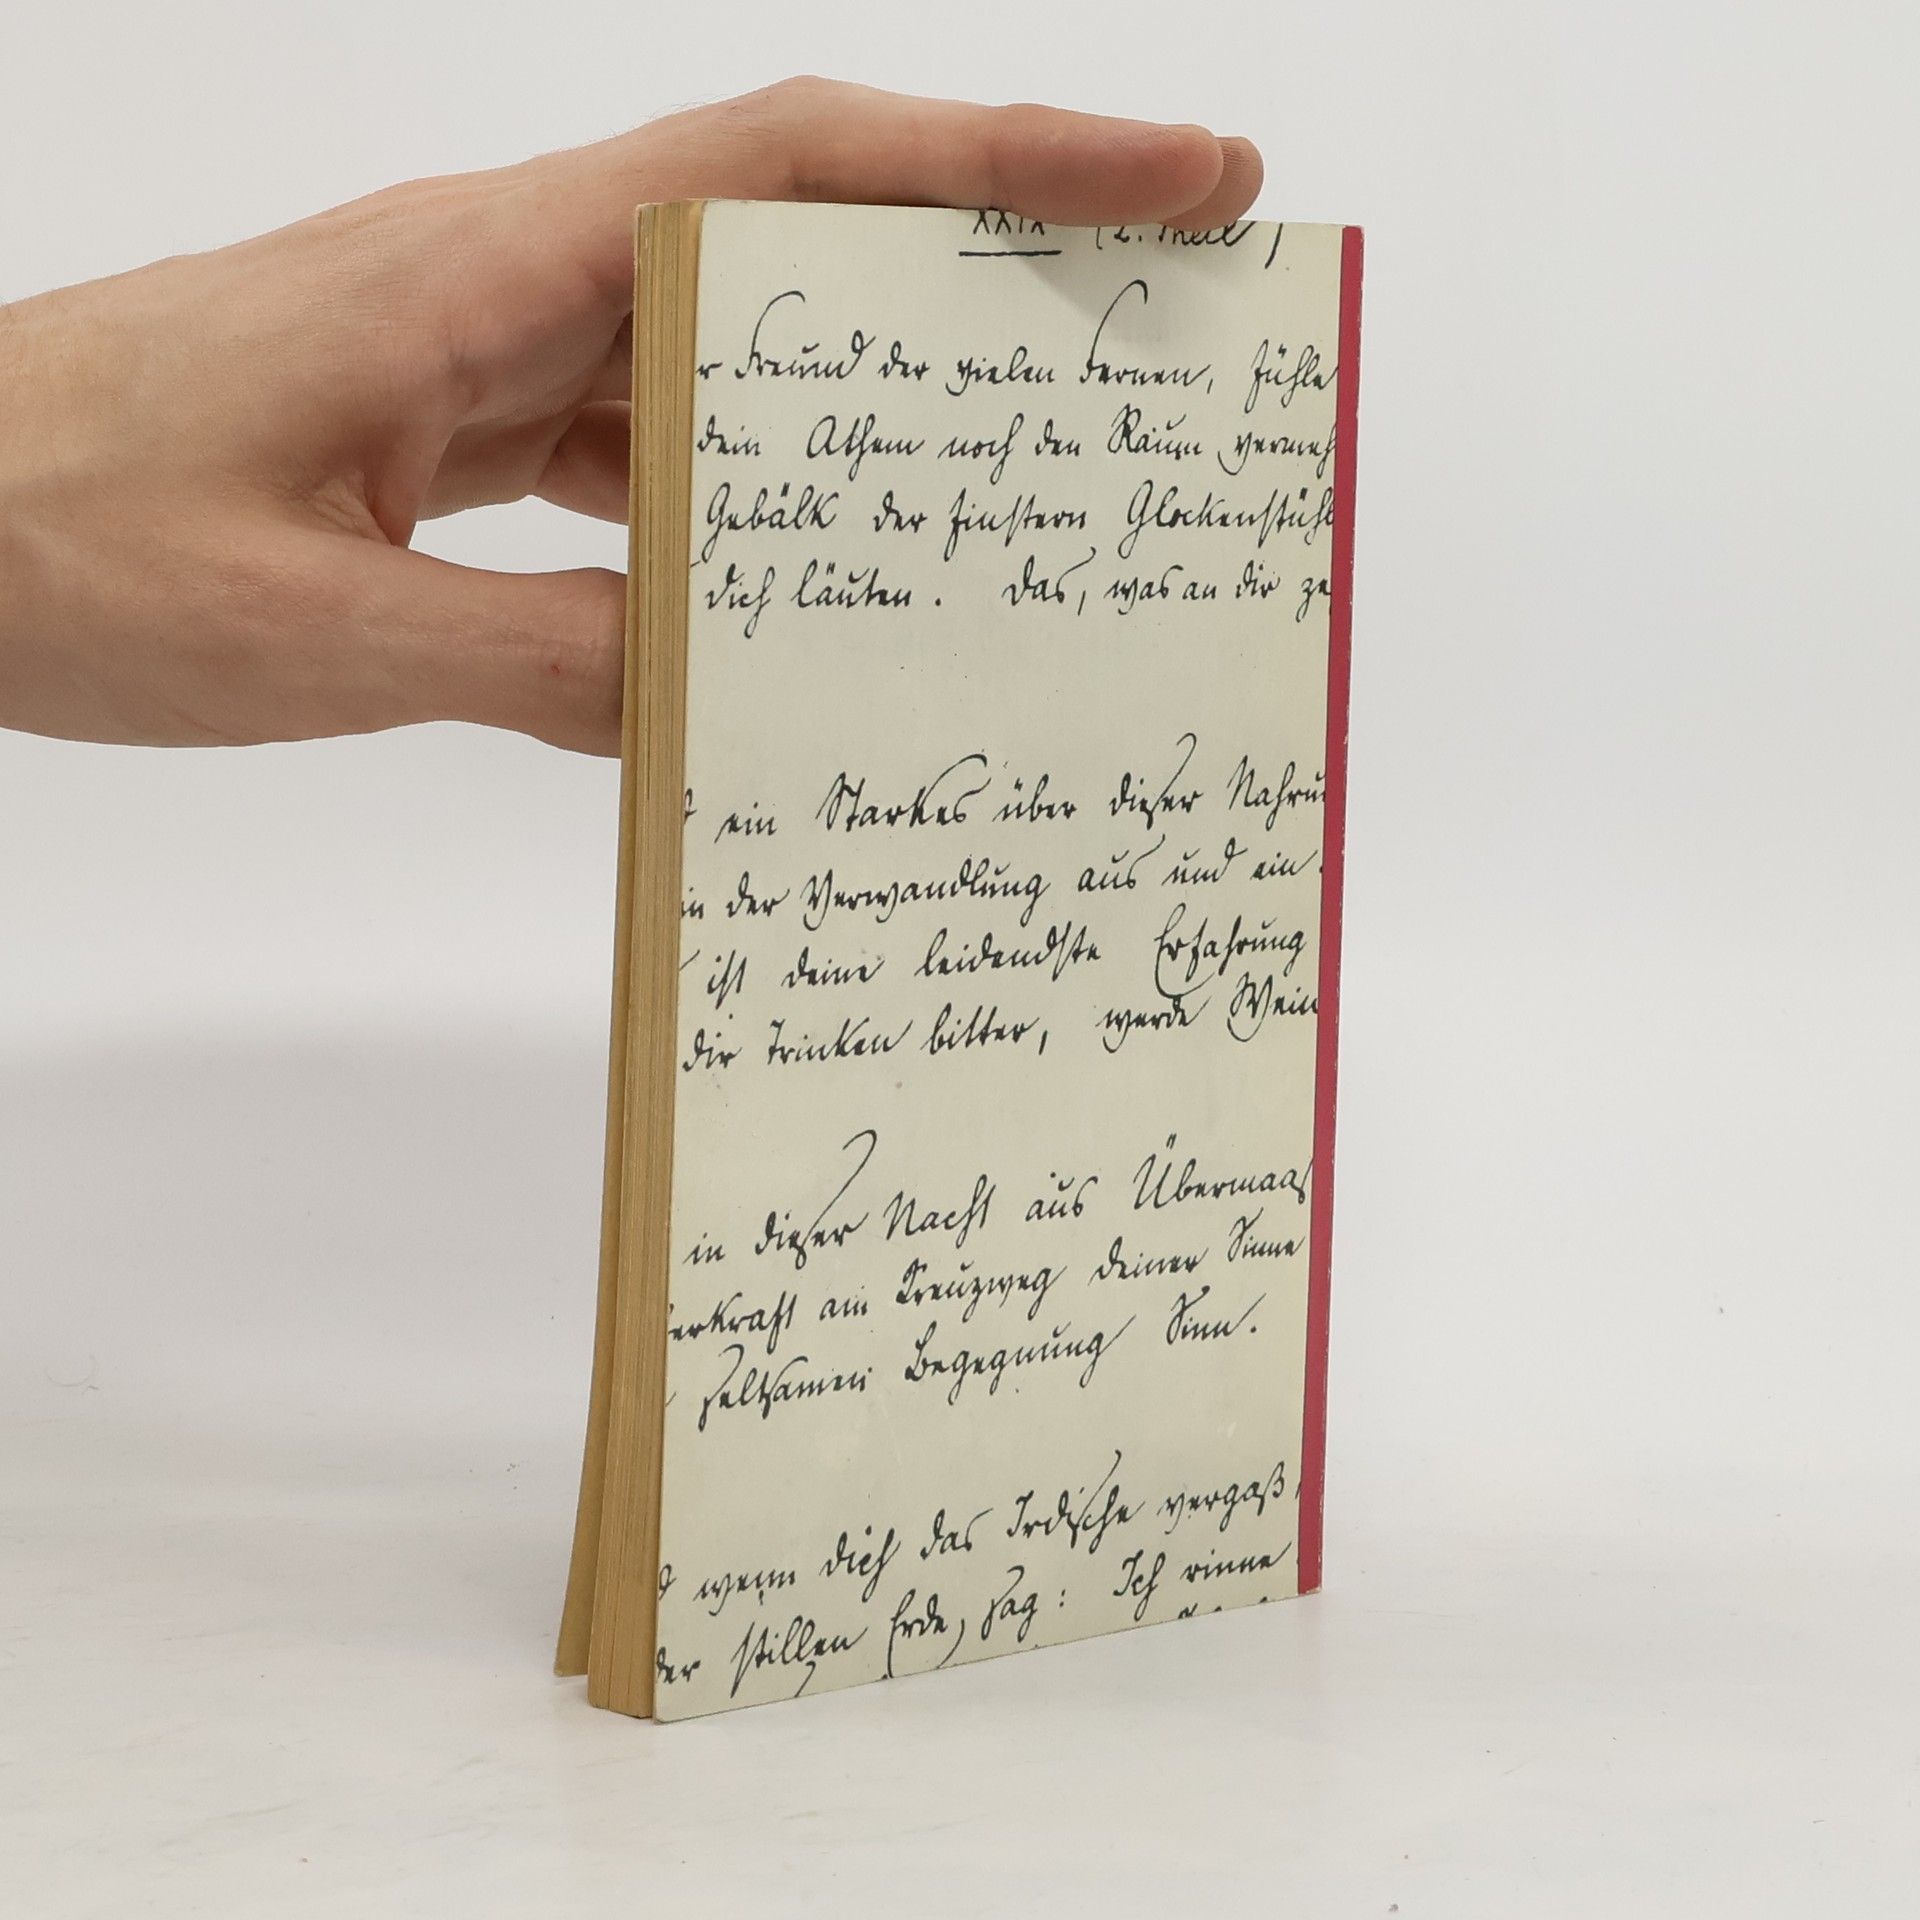 XXIX (2. Theil)
r Freund der vielen Fernen, fühle
dein Athem noch den Raum vermeh
Gebälk der finstern Glockenstühl
dich läuten. Das, was an dir ze
ein Starkes über dieser Nahru
in der Verwandlung aus und ein.
ist deine leidendste Erfahrung
dir Trinken bitter, werde Wein
in dieser Nacht aus Übermaas
erkraft am Kreuzweg deiner Sinne
seltsamen Begegnung Sinn.
wenn dich das Irdische vergaß,
der stillen Erde, sag: Ich rinne